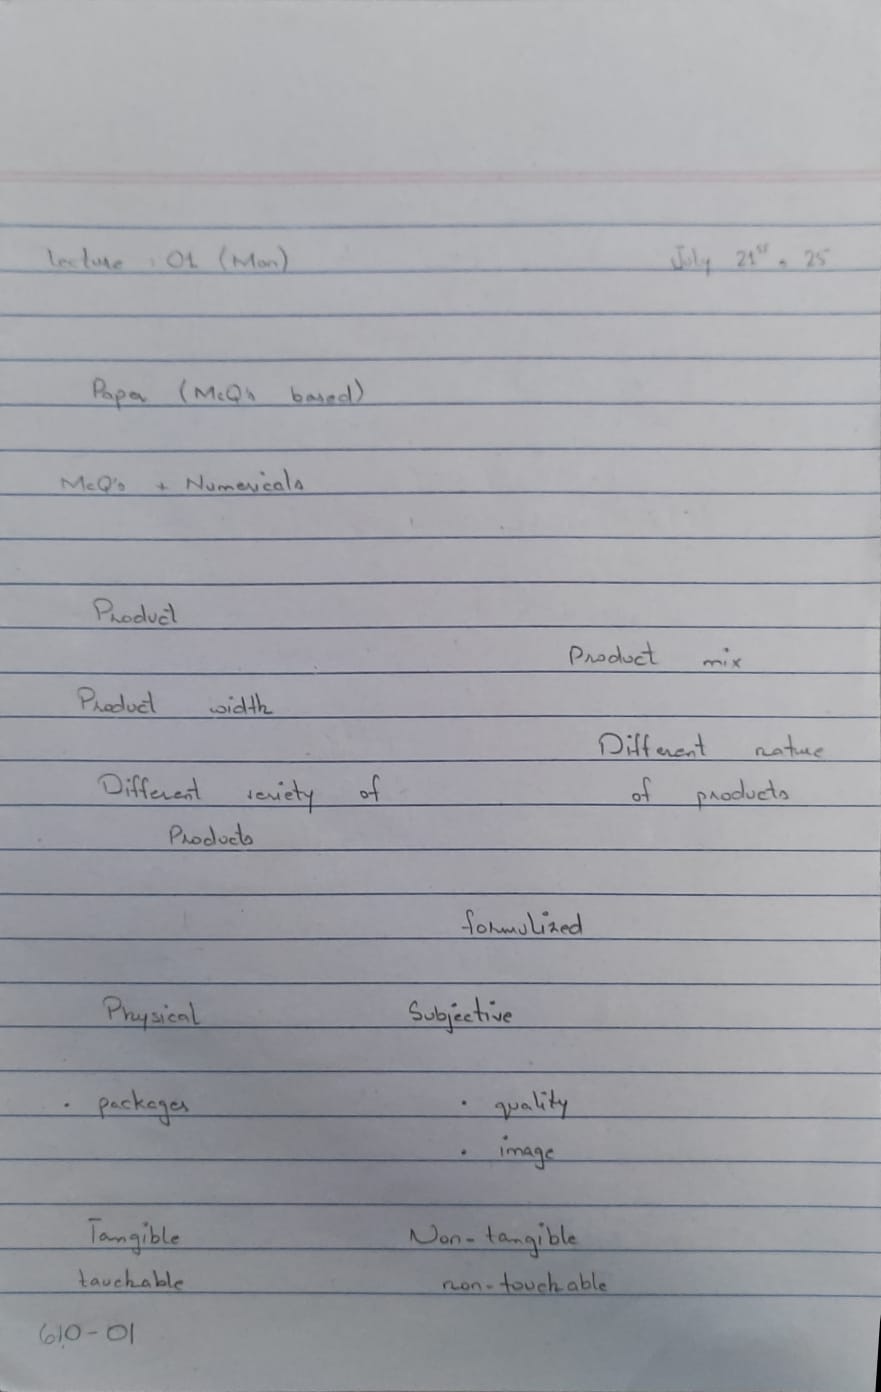 Lecture : 01 (Mon) July 21st . 25
Paper (McQ's based)
McQ's + Numericals
Product
Product mix
Product width
Different nature
Different veriety of of products
Products
formulized
Physical Subjective
• packages • quality
• image
Tangible Non-tangible
tauchable non-touchable
610-01